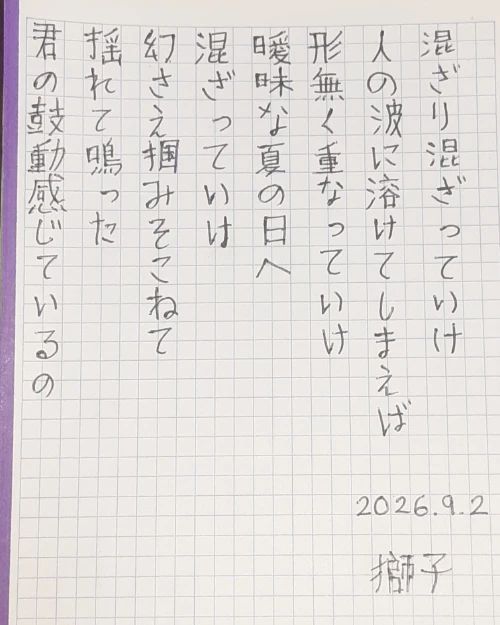 混ざり混ざっていけ
人の波に溶けてしまえば
形無く重なっていけ
曖昧な夏の日へ
混ざっていけ
幻さえ掴みそこねて
揺れて鳴った
君の鼓動感じているの
2026.9.2
獅子